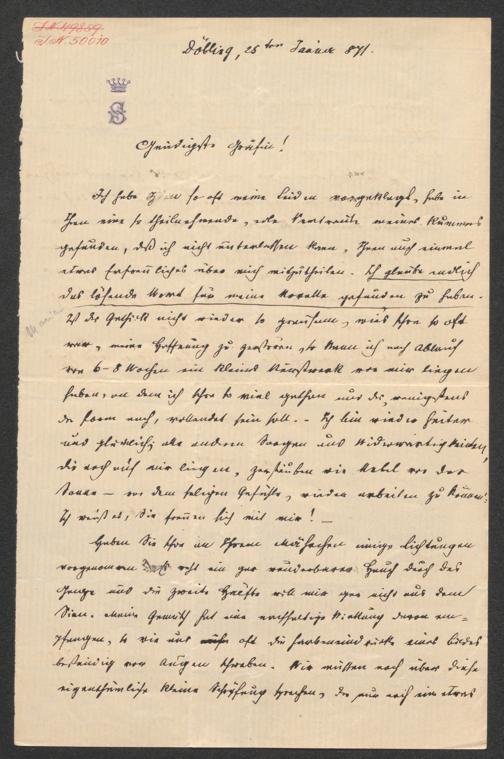 I.N. 49859
I.N. 50010
Döbling, 25ten Januar 871.
S
Gnädigste Gräfin!
Ich habe Ihnen so oft meine Leiden vorgeklagt, habe in
Ihnen eine so theilnehmende, edle Vertraute meines Kummers
gefunden, daß ich nicht unterlassen kann, Ihnen auch einmal
etwas Erfreuliches über mich mitzutheilen. Ich glaube endlich
das lösende Wort für meine Novelle gefunden zu haben.
Ist das Geschick nicht wieder so grausam, wie's schon so oft
war, meine Hoffnung zu zerstören, so kann ich nach Ablauf
von 6-8 Wochen ein kleines Kunstwerk vor mir liegen
haben, an dem ich schon so viel gethan und das, wenigstens
der Form nach, vollendet sein soll. - Ich bin wieder heiter
und glücklich; alle anderen Sorgen und Widerwärtigkeiten,
die noch auf mir liegen, zerstäuben wie Nebel vor der
Sonne - vor dem seligen Gefühle, wieder arbeiten zu können!
Ich weiß es, Sie freuen sich mit mir! -
Haben Sie schon an Ihrem Märchen einige Lichtungen
vorgenommen? Es geht ein gar wunderbarer Hauch durch das
Ganze und die zweite Hälfte will mir gar nicht aus dem
Sinn. Mein Gemüth hat eine nachhaltige Wirkung davon em-
pfangen, so wie uns oft die Farbeneindrücke eines Bildes
beständig vor Augen schweben. Wir müssen noch über diese
eigenthümliche kleine Schöpfung sprechen, die nur noch ein etwas